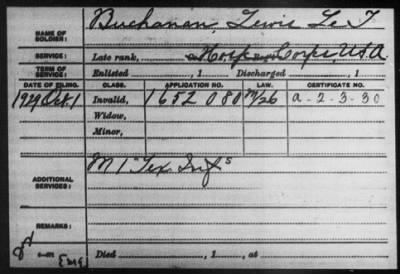 NAME OF SOLDIER: Buchanan, Lewis L. T.
SERVICE: Late rank, Hosp Corps, U.S.A
TERM OF SERVICE: Enlisted , 1 Discharged , 1
DATE OF FILING. CLASS. APPLICATION NO. LAW. CERTIFICATE NO.
1929 Oct. 1 Invalid, 1652 080 a-2-3-30
Widow,
Minor,
ADDITIONAL SERVICES: M 1" Tex. Inf
REMARKS:
Died , 1 , at